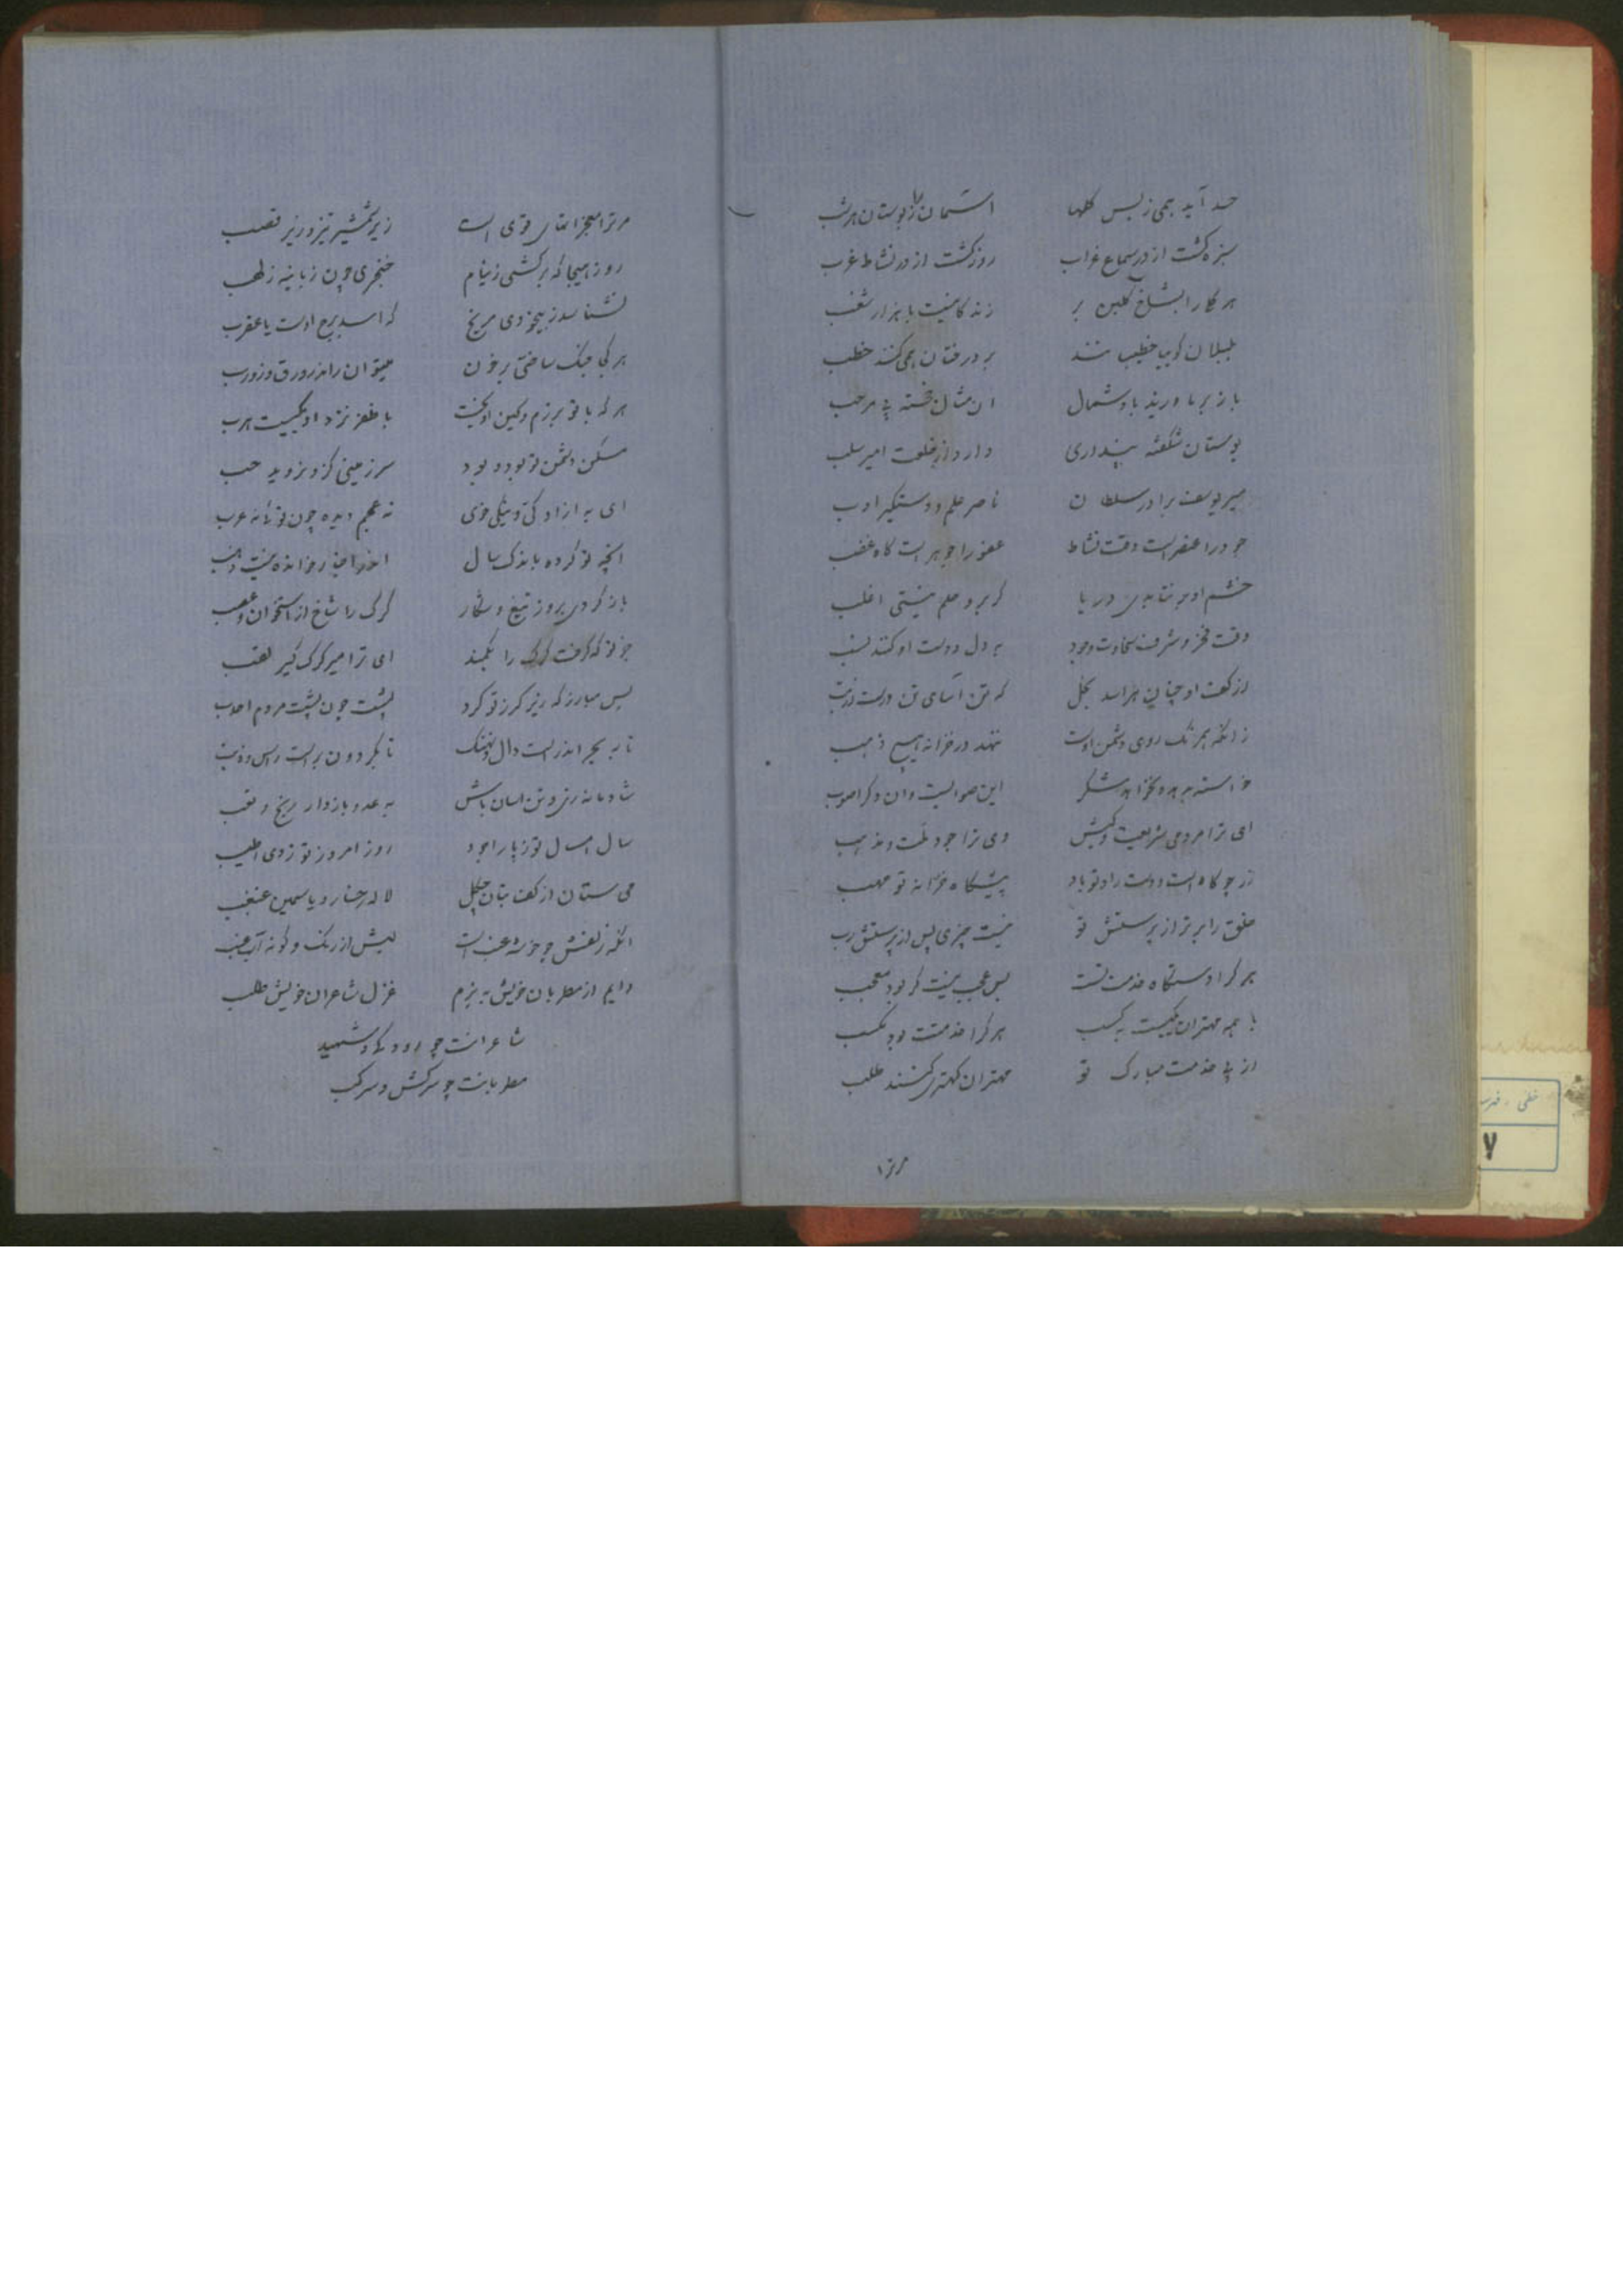 حسد آید همی ز بس گلها آسمان را ز بوستان هر شب
سبزه گشت از در سماع غراب روز گشت از در نشاط غرب
هر گلی را بشاخ گلبن بر زندگانیست با هزار شغب
بلبلان گوییا خطیب شدند بر درختان همی کنند خطب
باز بر ما وزید باد شمال آن شمال خجسته پی مرحب
بوستان شکفته پنداری دارد از خلعت امیر سلب
میر یوسف برادر سلطان ناصر علم و دستگیر ادب
جود را عنصر است وقت نشاط عفو را جوهر است گاه غضب
خشم او برنتابدی دریا گر برو حلم نیستی اغلب
وقت فخر و شرف سخاوت وجود بر دل و دست او کنند نسب
از کف او چنان هراسد بخل که تن آسای تن درست از تب
زانکه همرنگ روی دشمن اوست ننهد در خزانه هیچ ذهب
خواسته بدهد و نخواهد شکر این صوابست وان دگر اصوب
ای ترا مردمی شریعت و کیش وی ترا جود ملت و مذهب
زر چو کاهست و دست راد تو باد پیشگاه خزانه تو مهب
خلق را برتر از پرستش تو نیست چیزی پس از پرستش رب
هر کرا دستگاه خدمت تست بس عجب نیست گر بود معجب
با همه مهتران بکیست بکسب هر کرا خدمتت بود مکسب
از پی خدمت مبارک تو مهتران کهتری کنند طلب
مرترا
مر ترا معجزاتهای قوی است زیر شمشیر تیز و زیر قصب
روز هیجا که برکشی ز نیام خنجری چون زبانه ز لهب
نشناسد ز بیخودی مریخ که اسد برج اوست یا عقرب
هر کجا جنگ ساختی بر خون میتوان راند زورق و زورب
هر که با تو برزم و کین آویخت با ظفر نزد او یکیست هرب
مسکن دشمن تو بود و بود سرزمینی کزو نروید حب
ای به آزادگی و نیکی خوی نه عجم دیده چون تویی نه عرب
آنچه تو کرده باندک سال اندر اخبار خوانده نیست وهب
باز کردی بروز تیغ و شکار کرگ را شاخ از استخوان و عصب
جز تو که گرفت کرگ را بکمند ای ترا میر کرگ گیر لقب
بس مبارز که زیر گرز تو کرد پشت چون پشت مردم احدب
تا به بحر اندر است وال و نهنگ تا بگردون بر است راس و ذنب
شادمانه زی و تن آسان باش به عدو باز دار رنج و تعب
سال امسال تو ز پار اجود روز امروز تو ز دی اطیب
می ستان از کف بتان چگل لاله رخسار و یاسمین غبغب
آنکه زلفش چو خوشه عنب است لبش از رنگ و گونه آب عنب
دایم از مطربان خویش به بزم غزل شاعران خویش طلب
شاعرانت چو رودکی و شهید
مطربانت چو سرکش و سرکب
خطی - فهرست
۷